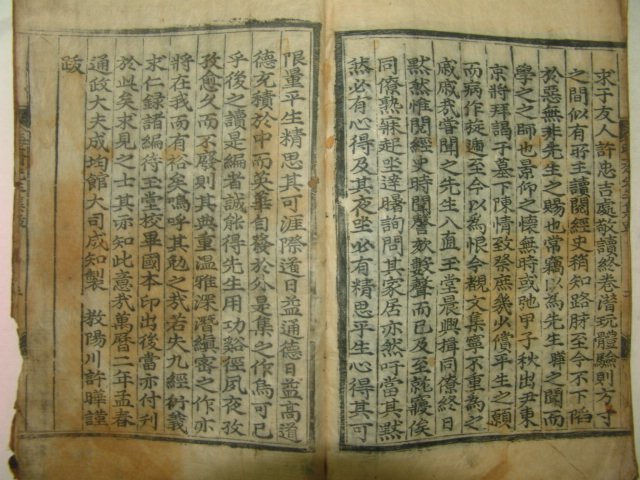 求于友人許忠吉處敬讀終卷潛玩體驗則方寸
之間似有所主讀閱經史稍知路脉至今不下陷
於惡無非先生之賜也常竊以爲先生聯之聞而
學之之師也景仰之懷無時或弛甲子秋出尹東
京將拜謁于墓下陳情致祭庶幾少償平生之願
而病作旋遞至今以爲恨今觀文集寧不重爲之
戚戚我嘗聞之先生入直玉堂晨興揖同僚終日
默然惟閱經史時聞謦欬數聲而已及至就寢俟
同僚熟寐起坐達曙詢問其家居亦然吁當其默
然必有心得及其夜坐必有精思平生心得其可
限量平生精思其可涯際道日益通德日益高道
德充積於中而英華自發於外是集之作烏可已
乎後之讀是編者誠能得先生用功谿徑夙夜孜
孜愈久而不廢則其典重溫雅深潛縝密之作亦
將在我而有裕矣嗚呼其勉之哉若夫九經衍義
求仁錄諸編待玉堂校畢國本印出後當亦付刊
於此矣求見之士其亦知此意哉萬曆二年孟春
通政大夫成均館大司成知製　敎陽川許曄謹
跋